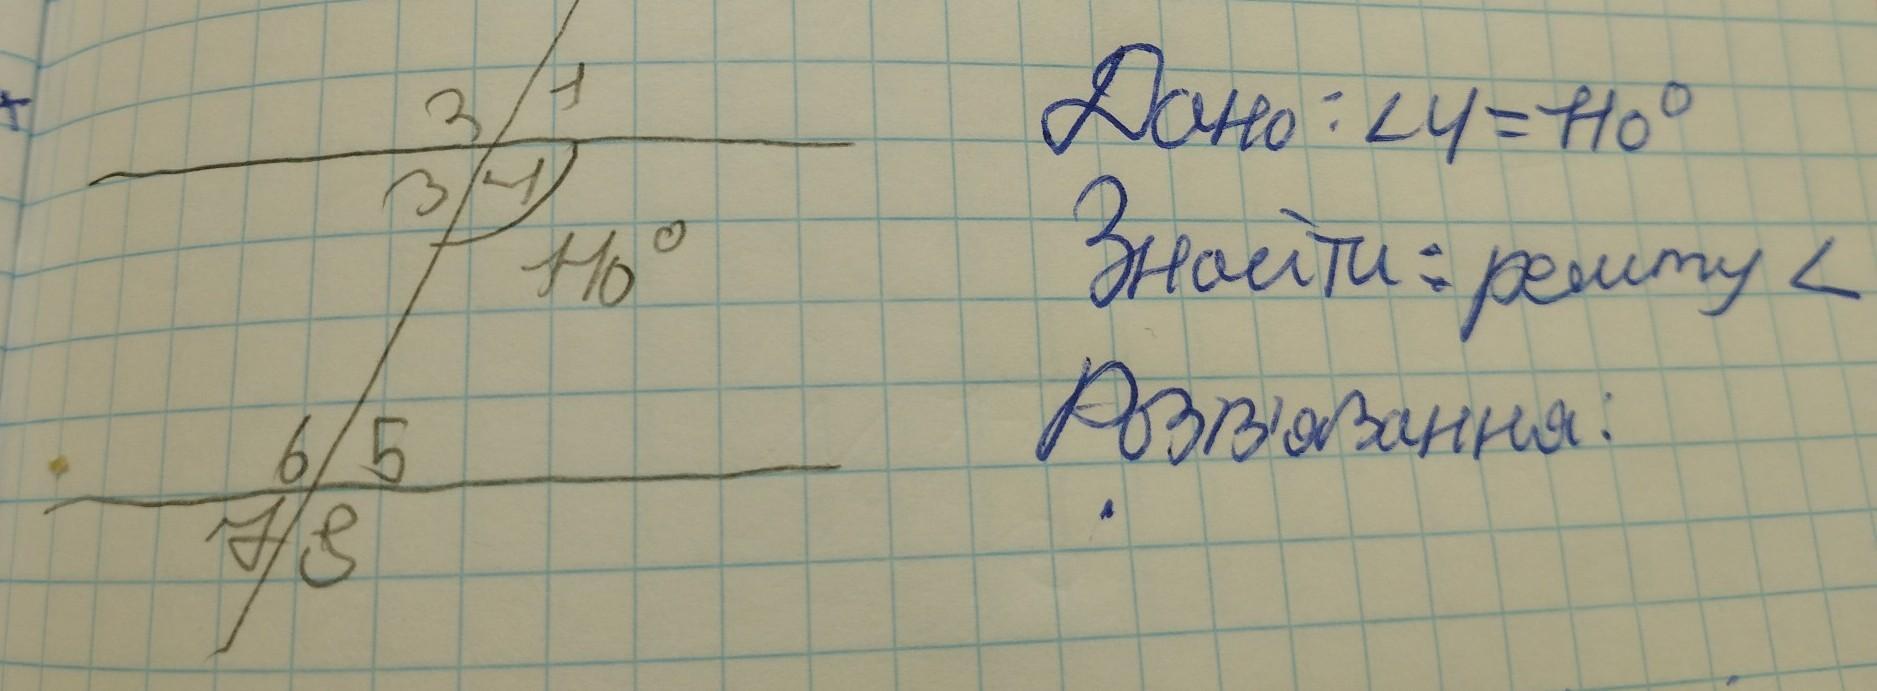 3 1
3 4
110°
6 5
7 8
Дано: <4=110°
Знайти: решту <
Розв'язання: